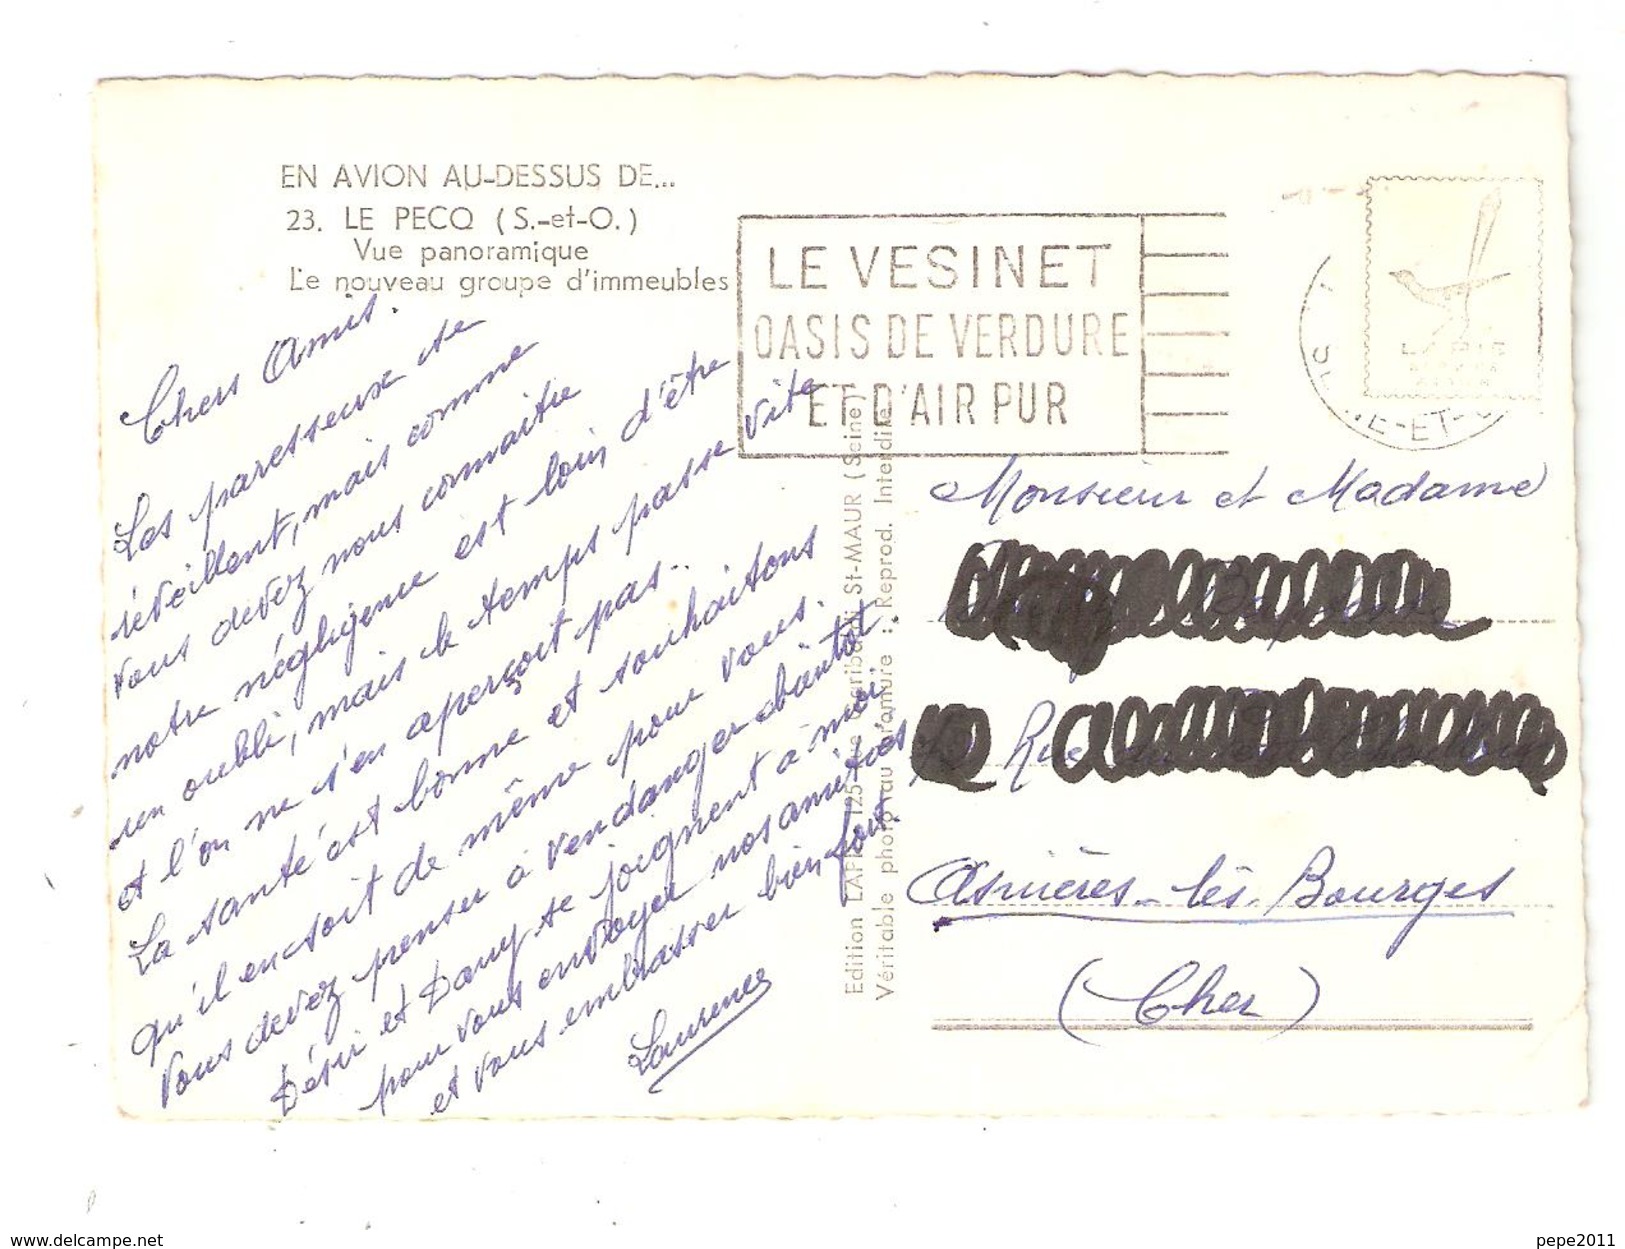 EN AVION AU-DESSUS DE...
23. LE PECQ (S.-et-O.)
Vue panoramique
Le nouveau groupe d'immeubles
LE VESINET
OASIS DE VERDURE
ET D'AIR PUR
LAPIE
NE-ET-O
Chers Amis.
Les paresseux se
réveillent, mais comme
vous devez nous connaitre
notre négligence est loin d'être
un oubli, mais le temps passe vite
et l'on ne s'en aperçoit pas..
La santé est bonne et souhaitons
qu'il en soit de même pour vous.
Vous devez penser à vendanger bientôt.
Désir et Dany se joignent à moi
pour vous envoyer nos amitiés
et vous embrasser bien fort.
Laurence
Edition LAPIE 125 rue Garibaldi St-MAUR (Seine)
Véritable photo au bromure : Reprod. Interdite
Monsieur et Madame
Rue
Asnières-lès-Bourges
(Cher)
delcampe.net
pepe2011